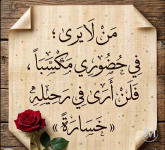 مَنْ لَا يَرَى؛
فِي حُضُورِي مَكْسَبًا،
فَلَنْ أَرَى فِي رَحِيلِهِ
« خَسَارَةً »